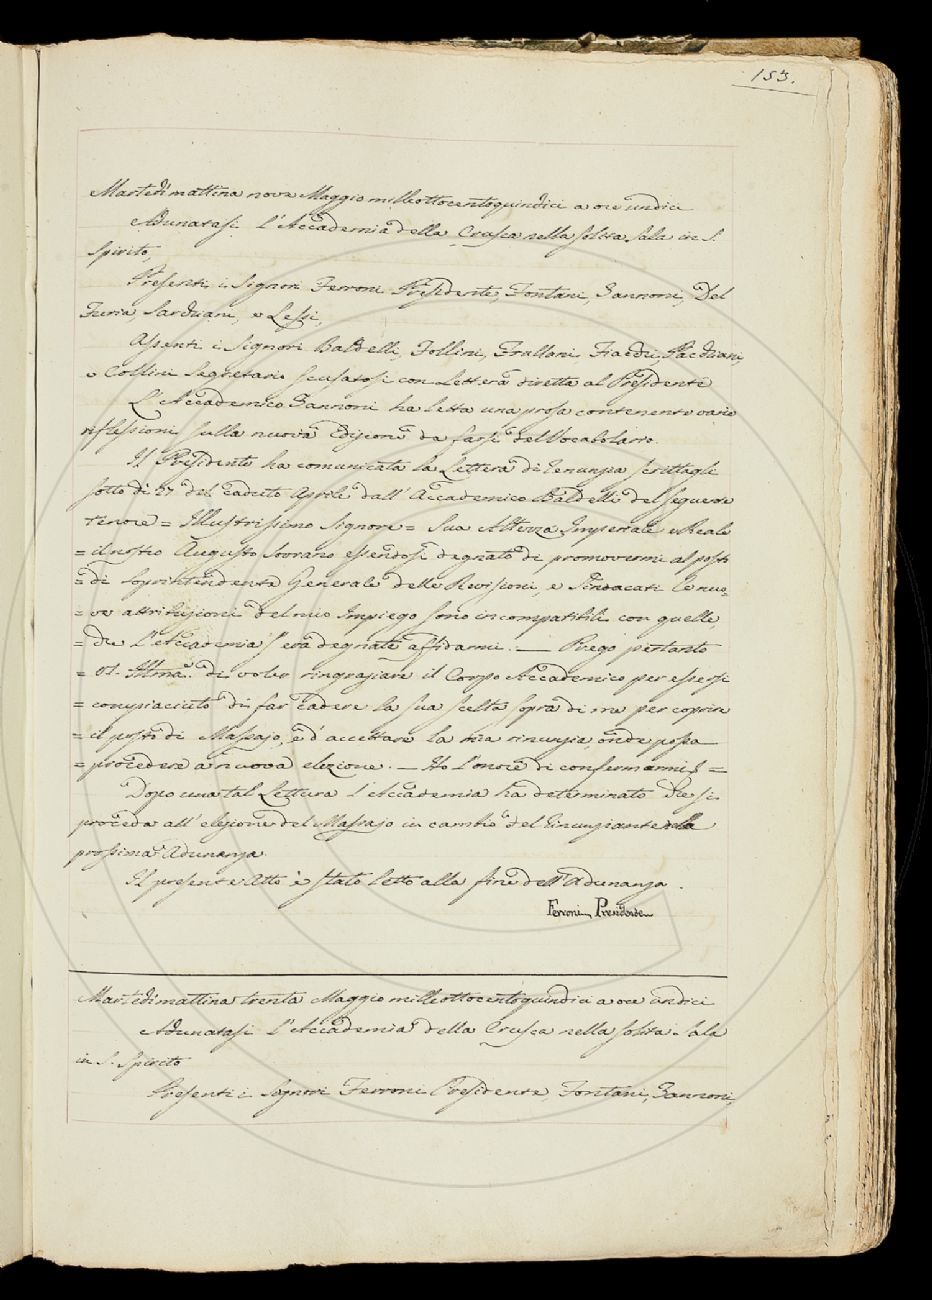 153.
Martedì mattina nove Maggio milleottocentoquindici a ore undici
Adunatasi l'Accademia della Crusca nella solita Sala in S.
Spirito,
Presenti i Signori Ferroni Presidente, Fontani, Zannoni, Del
Furia, Sarchiani, e Lessi,
Assenti i Signori Baldelli, Follini, Frullani, Fiacchi,
e Collini Segretario scusatosi con Lettera diretta al Presidente
L'Accademico Zannoni ha letta una prosa contenente varie
riflessioni sulla nuova Edizione da farsi del Vocabolario.
Il Presidente ha comunicata la Lettera di renunzia scrittagli
sotto dì 27 del caduto Aprile dall'Accademico Baldelli del seguente
tenore = Illustrissimo Signore = Sua Altezza Imperiale e Reale
= il nostro Augusto Sovrano essendosi degnato di promovermi al posto
= di Soprintendente Generale delle Revisioni, e Sindacati le nuo-
= ve attribuzioni del mio Impiego sono incompatibili con quelle,
= che l'Accademia s'era degnata affidarmi. — Prego pertanto
= VS. Illma. di voler ringraziare il Corpo Accademico per essersi
= compiaciuto di far cadere la sua scelta sopra di me per coprire
= il posto di Massajo, e d'accettare la mia rinunzia onde possa
= procedere a nuova elezione. — Ho l'onore di confermarmi =
Dopo una tal Lettura l'Accademia ha determinato che si
proceda all'elezione del Massajo in cambio del renunziante nella
prossima Adunanza.
Il presente Atto è stato letto alla fine dell'Adunanza.
Ferroni Presidente
Martedì mattina trenta Maggio milleottocentoquindici a ore undici
Adunatasi l'Accademia della Crusca nella solita Sala
in S. Spirito
Presenti i Signori Ferroni Presidente, Fontani, Zannoni,